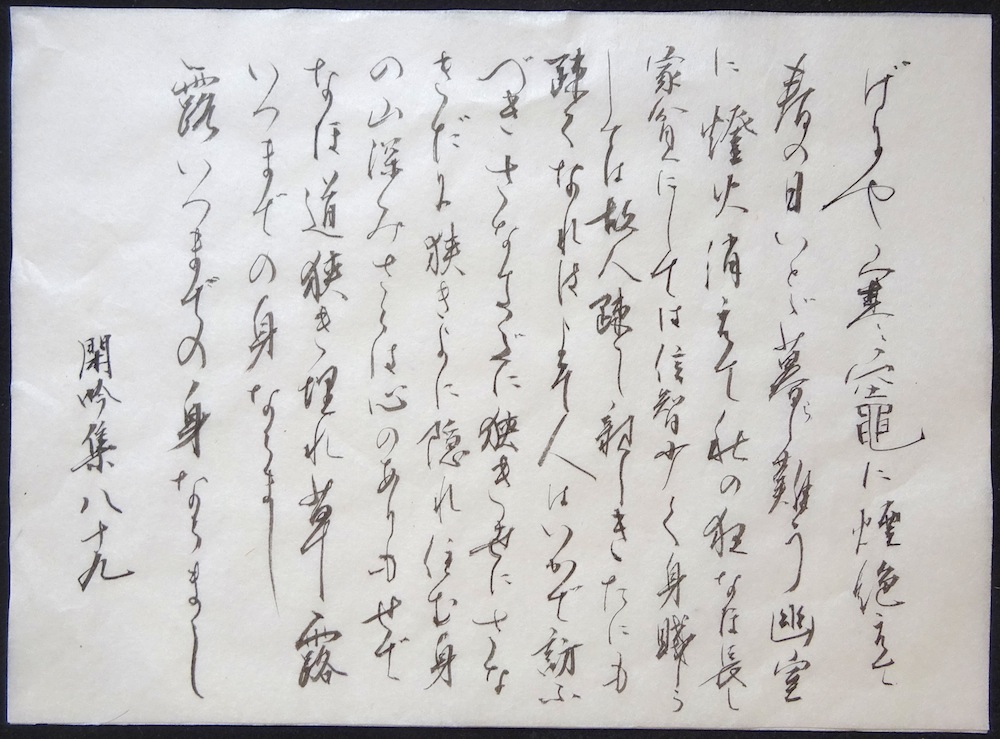 げにや寒竈に煙絶えて
春の日いとゞ暮らし難う幽室
に燈火消えて秋の夜なほ長し
家貧にしては信智少く身賤しう
しては故人疎し親しきだにも
疎くなれば よそ人はいかで訪ふ
べき さなきだに狭き世に さな
きだに狭き世に隠れ住む身
の山深み さらば心のありもせで
なほ道狭き埋れ草 露
いつまでの身ならまし
露いつまでの身ならまし
閑吟集八十九